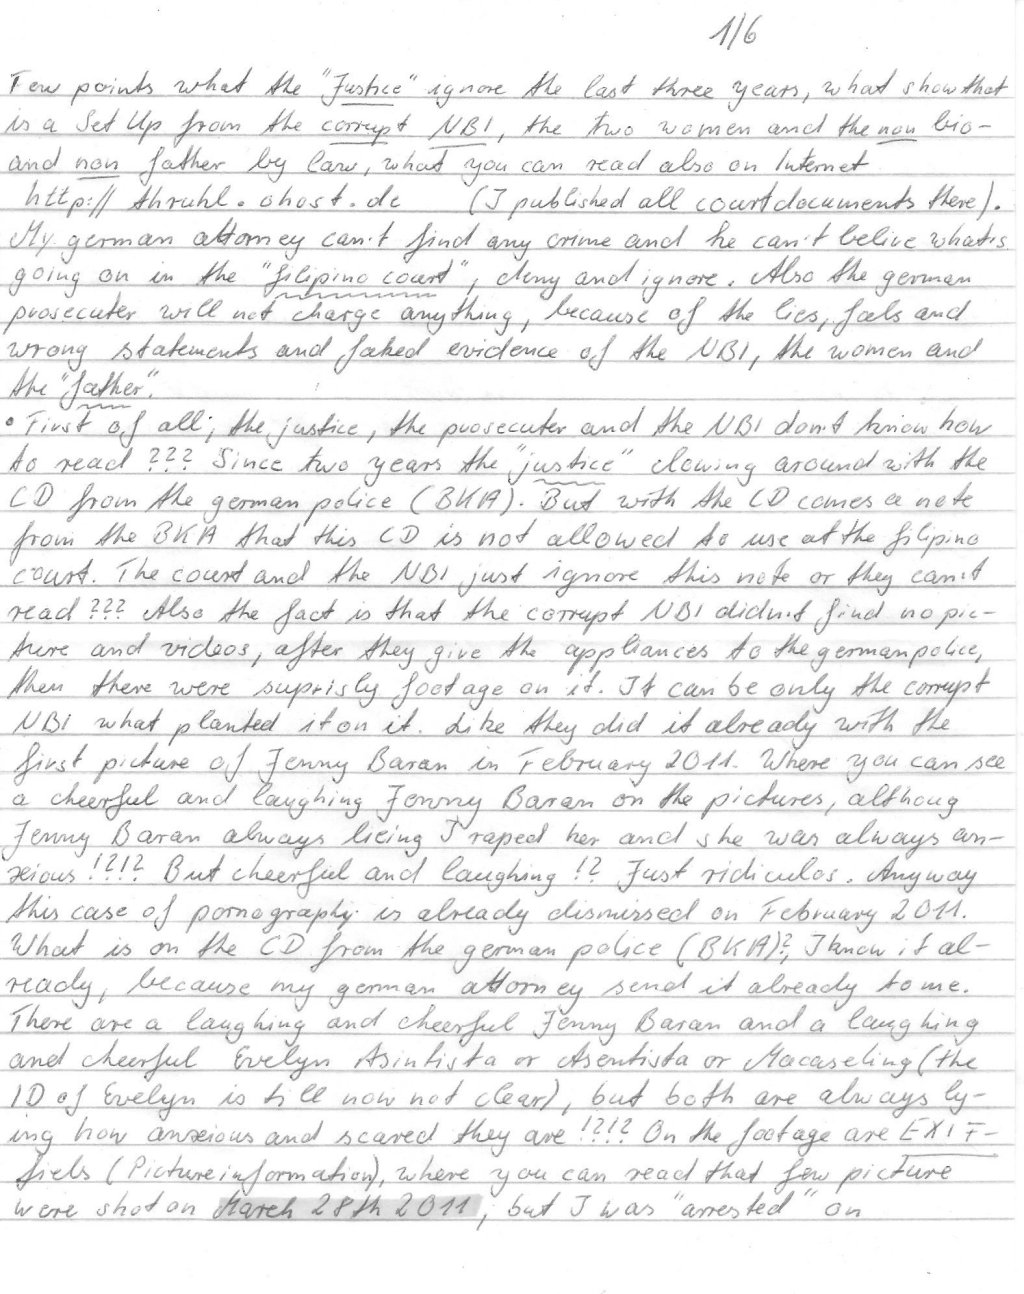 1/6
Few points what the "Justice" ignore the last three years, what show that
is a Set Up from the corrupt NBI, the two women and the non bio-
and non father by law, what you can read also on Internet
http:// thruhl.ohost.de (I published all courtdocuments there).
My german attorney can't find any crime and he can't belive what is
going on in the "filipino court", deny and ignore. Also the german
prosecuter will not charge anything, because of the lies, fals and
wrong statements and faked evidence of the NBI, the women and
the "father".
• First of all; the justice, the prosecuter and the NBI don't know how
to read ??? Since two years the "justice" clowing around with the
CD from the german police (BKA). But with the CD comes a note
from the BKA that this CD is not allowed to use at the filipino
court. The court and the NBI just ignore this note or they can't
read ??? Also the fact is that the corrupt NBI didn't find no pic-
ture and videos, after they give the appliances to the german police,
then there were suprisly footage on it. It can be only the corrupt
NBI what planted it on it. Like they did it already with the
first picture of Jenny Baran in February 2011. Where you can see
a cheerful and laughing Jenny Baran on the pictures, althoug
Jenny Baran always lieing I raped her and she was always an-
xious !?!? But cheerful and laughing !? Just ridiculos. Anyway
this case of pornography is already dismissed on February 2011.
What is on the CD from the german police (BKA)?, I know it al-
ready, because my german attorney send it already to me.
There are a laughing and cheerful Jenny Baran and a laughing
and cheerful Evelyn Asintista or Asentista or Macaseling (the
ID of Evelyn is till now not clear), but both are always ly-
ing how anxious and scared they are !?!? On the footage are EXIF-
fiels (Pictureinformation), where you can read that few picture
were shot on March 28th 2011, but I was "arrested" on